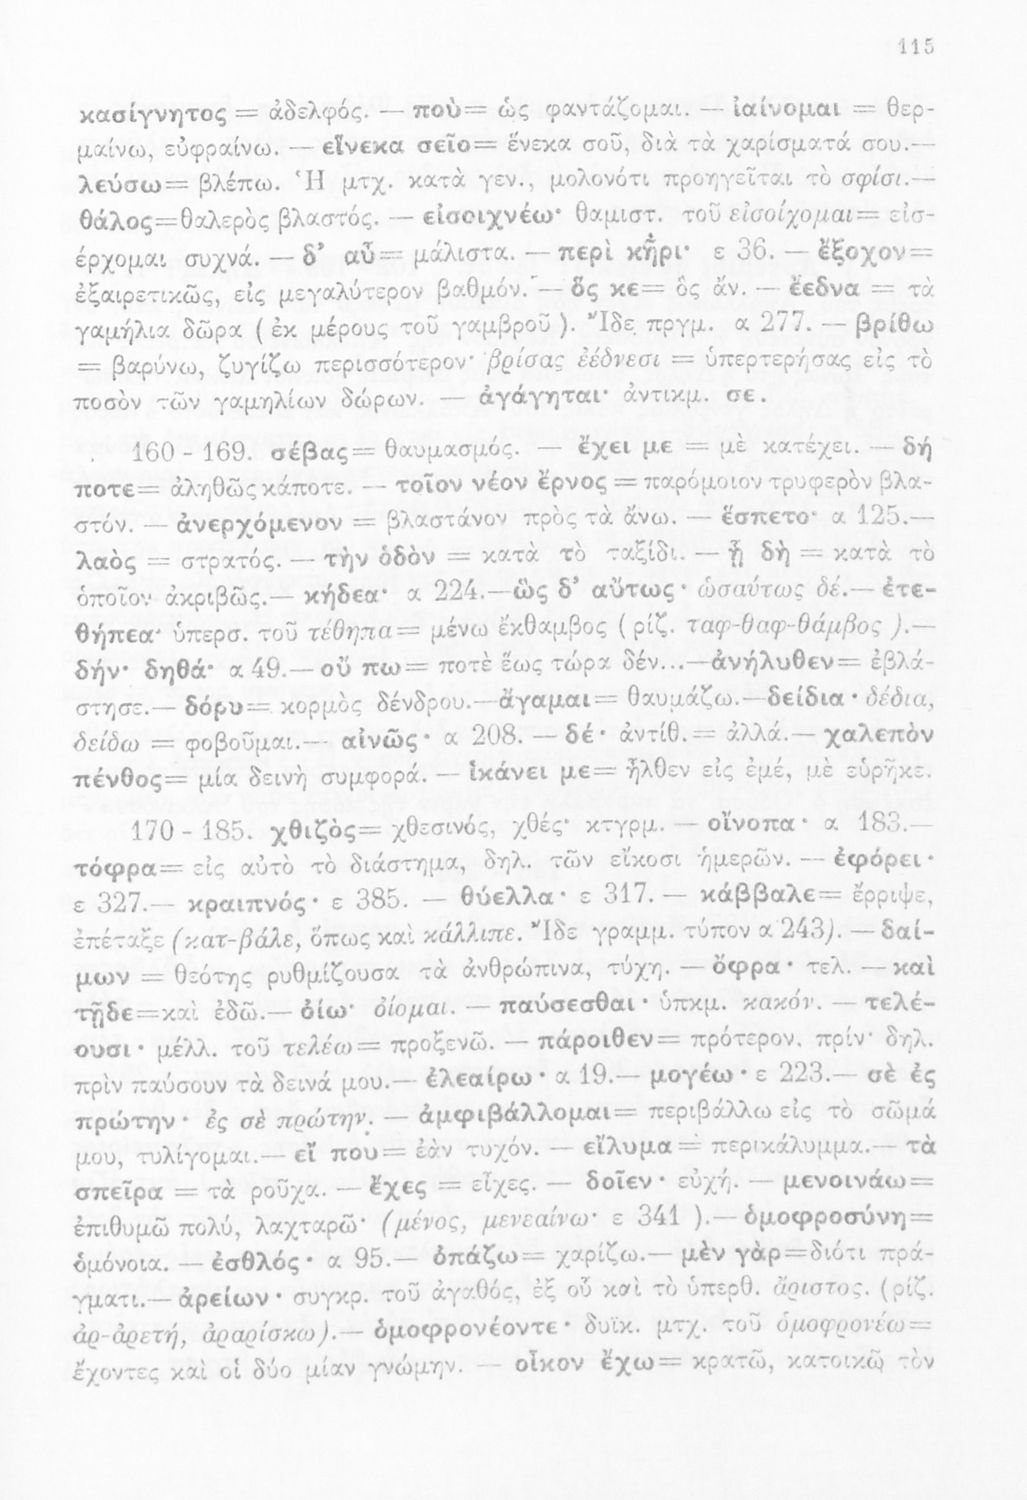 115
κασίγνητος = ἀδελφός. — ποὺ = ὡς φαντάζομαι. — ἰαίνομαι = θερ-
μαίνω, εὐφραίνω. — εἵνεκα σεῖο = ἕνεκα σοῦ, διὰ τὰ χαρίσματά σου.—
λεύσω = βλέπω. Ἡ μτχ. κατὰ γεν., μολονότι προηγεῖται τὸ σφίσι.—
θάλος=θαλερὸς βλαστός. — εἰσοιχνέω· θαμιστ. τοῦ εἰσοίχομαι = εἰσ-
έρχομαι συχνά. — δ' αὖ = μάλιστα. — περὶ κῆρι· ε 36. — ἔξοχον =
ἐξαιρετικῶς, εἰς μεγαλύτερον βαθμόν. — ὅς κε = ὃς ἄν. — ἔεδνα = τὰ
γαμήλια δῶρα ( ἐκ μέρους τοῦ γαμβροῦ ). Ἴδε πργμ. α 277. — βρίθω
= βαρύνω, ζυγίζω περισσότερον· βρίσας ἐέδνεσι = ὑπερτερήσας εἰς τὸ
ποσὸν τῶν γαμηλίων δώρων. — ἀγάγηται· ἀντικμ. σε.
160 - 169. σέβας = θαυμασμός. — ἔχει με = μὲ κατέχει. — δή
ποτε = ἀληθῶς κάποτε. — τοῖον νέον ἔρνος = παρόμοιον τρυφερὸν βλα-
στόν. — ἀνερχόμενον = βλαστάνον πρὸς τὰ ἄνω. — ἕσπετο· α 125.—
λαὸς = στρατός. — τὴν ὁδὸν = κατὰ τὸ ταξίδι. — ᾗ δὴ = κατὰ τὸ
ὁποῖον ἀκριβῶς.— κήδεα· α 224.—ὣς δ' αὔτως· ὡσαύτως δέ.— ἐτε-
θήπεα· ὑπερσ. τοῦ τέθηπα = μένω ἔκθαμβος ( ρίζ. ταφ-θαφ-θάμβος ).—
δήν· δηθά· α 49.— οὔ πω = ποτὲ ἕως τώρα δέν...—ἀνήλυθεν = ἐβλά-
στησε.— δόρυ = κορμὸς δένδρου.—ἄγαμαι = θαυμάζω.—δείδια· δέδια,
δείδω = φοβοῦμαι.— αἰνῶς· α 208. — δέ· ἀντίθ. = ἀλλά.— χαλεπὸν
πένθος = μία δεινὴ συμφορά. — ἱκάνει με = ἦλθεν εἰς ἐμέ, μὲ εὑρῆκε.
170 - 185. χθιζὸς = χθεσινός, χθές· κτγρμ. — οἴνοπα· α 183.—
τόφρα = εἰς αὐτὸ τὸ διάστημα, δηλ. τῶν εἴκοσι ἡμερῶν. — ἐφόρει·
ε 327.— κραιπνός· ε 385. — θύελλα· ε 317. — κάββαλε = ἔρριψε,
ἐπέταξε (κατ-βάλε, ὅπως καὶ κάλλιπε. Ἴδε γραμμ. τύπον α 243). — δαί-
μων = θεότης ρυθμίζουσα τὰ ἀνθρώπινα, τύχη. — ὄφρα· τελ. — καὶ
τῇδε=καὶ ἐδῶ.— ὀίω· ὀίομαι. — παύσεσθαι· ὑπκμ. κακόν. — τελέ-
ουσι· μέλλ. τοῦ τελέω = προξενῶ. — πάροιθεν = πρότερον, πρίν· δηλ.
πρὶν παύσουν τὰ δεινά μου.— ἐλεαίρω· α 19.— μογέω· ε 223.— σὲ ἐς
πρώτην· ἐς σὲ πρώτην. — ἀμφιβάλλομαι = περιβάλλω εἰς τὸ σῶμά
μου, τυλίγομαι.— εἴ που = ἐὰν τυχόν. — εἴλυμα = περικάλυμμα.— τὰ
σπεῖρα = τὰ ροῦχα. — ἔχες = εἶχες. — δοῖεν· εὐχή. — μενοινάω =
ἐπιθυμῶ πολύ, λαχταρῶ· (μένος, μενεαίνω· ε 341 ).— ὁμοφροσύνη =
ὁμόνοια. — ἐσθλός· α 95.— ὀπάζω = χαρίζω.— μὲν γὰρ=διότι πρά-
γματι.— ἀρείων· συγκρ. τοῦ ἀγαθός, ἐξ οὗ καὶ τὸ ὑπερθ. ἄριστος. (ρίζ.
ἀρ-ἀρετή, ἀραρίσκω).— ὁμοφρονέοντε· δυϊκ. μτχ. τοῦ ὁμοφρονέω =
ἔχοντες καὶ οἱ δύο μίαν γνώμην. — οἶκον ἔχω = κρατῶ, κατοικῶ τὸν